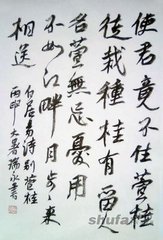 使君竟不住萱桂
徒栽種桂有留人
名萱無忘憂用
不如江畔月步步来
相送
白居易诗别萱桂
丙申大暑瑞永書
shufa